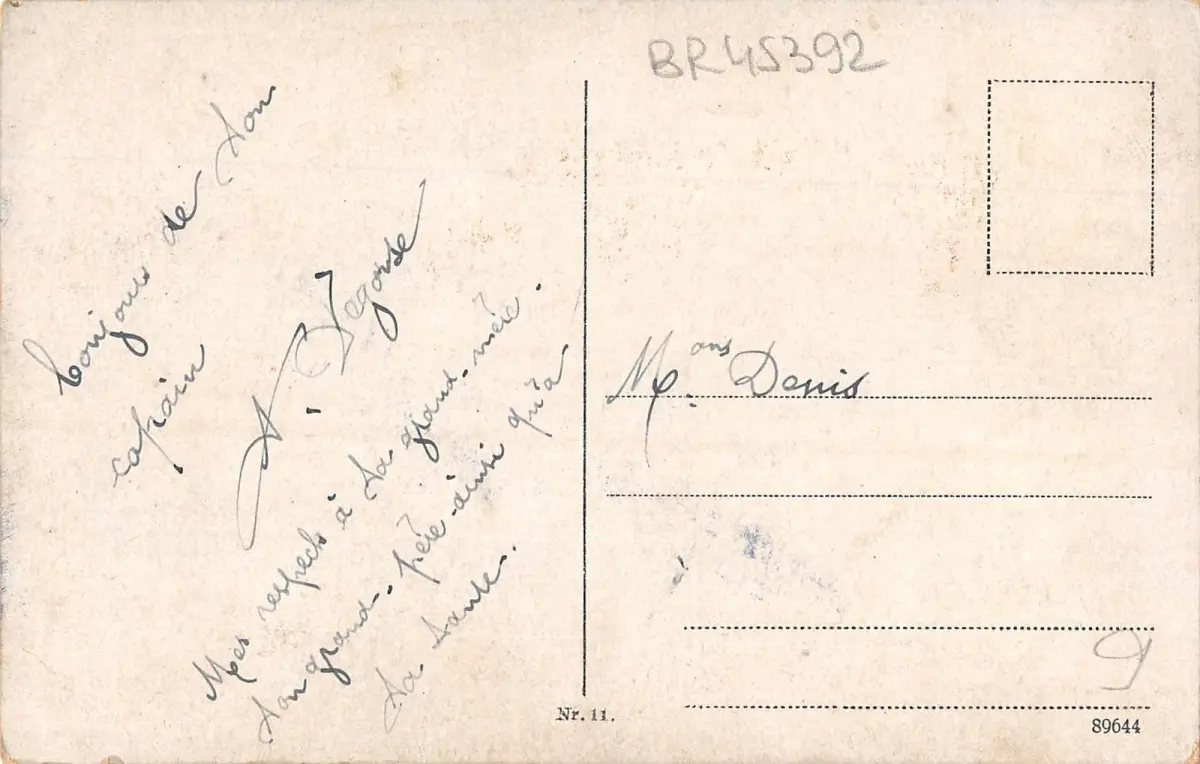 BR45392
bonjours de ton
copain
Mes respects à ta grand-mère.
ton grand-père ainsi qu'à
ta tante.
Mons Denis
Nr. 11.
89644